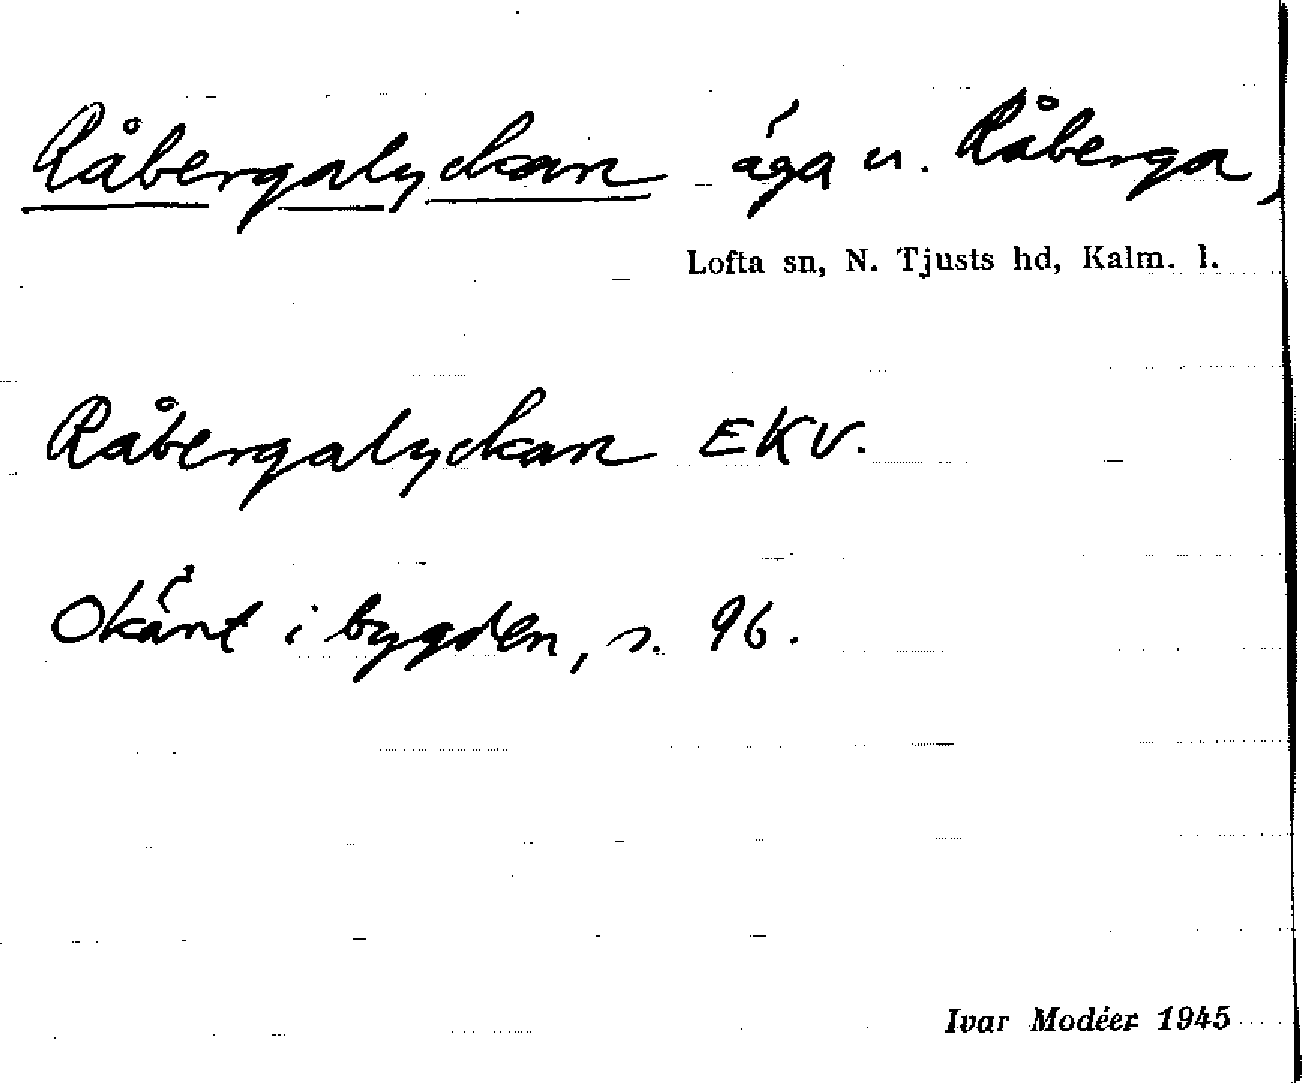 Råbergalyckan äga u. Råberga,
Lofta sn, N. Tjusts hd, Kalm. l.
Råbergalyckan EKV.
Okänt i bygden, s. 96.
Ivar Modéer 1945